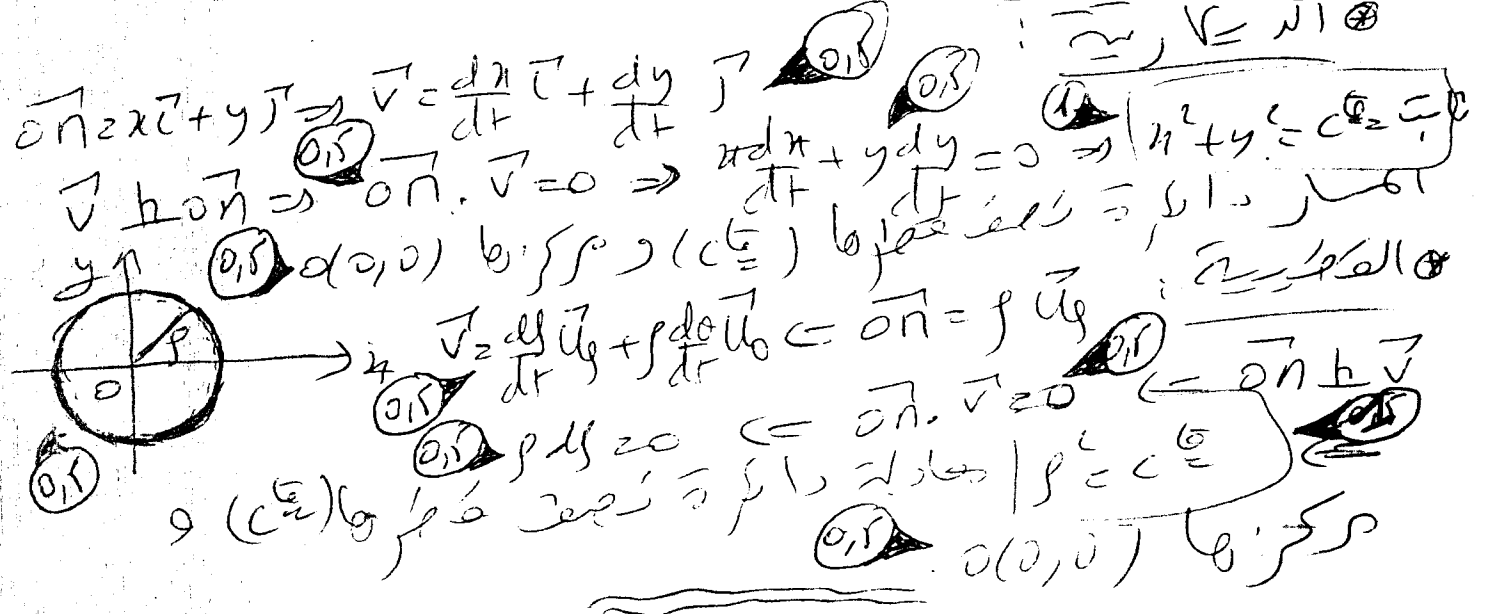 ⊛ الديكارتية :
$\vec{OM} = x\vec{i} + y\vec{j} \Rightarrow \vec{V} = \frac{dx}{dt}\vec{i} + \frac{dy}{dt}\vec{j}$ 0,5
$\vec{V} \perp \vec{OM} \Rightarrow$ 0,5 $\vec{OM}.\vec{V} = 0 \Rightarrow x\frac{dx}{dt} + y\frac{dy}{dt} = 0$ 0,5 $\Rightarrow$ 1 $x^2 + y^2 = c^{te} =$ ثابت
المسار دائرة نصف قطرها (c^{te}) و مركزها O(0,0) 0,5
y
ρ
O
x
0,5
⊛ القطبية :
$\vec{OM} = \rho\vec{U}_\rho \Rightarrow \vec{V} = \frac{d\rho}{dt}\vec{U}_\rho + \rho\frac{d\theta}{dt}\vec{U}_\theta$ 0,5
$\vec{OM} \perp \vec{V}$ ⇐ $\vec{OM}.\vec{V} = 0$ 0,5 ⇐ $\rho d\rho = 0$ 0,5
⇐ 0,5 $\rho^2 = c^{te}$ معادلة دائرة نصف قطرها (c^{te}) و
مركزها O(0,0) . 0,5